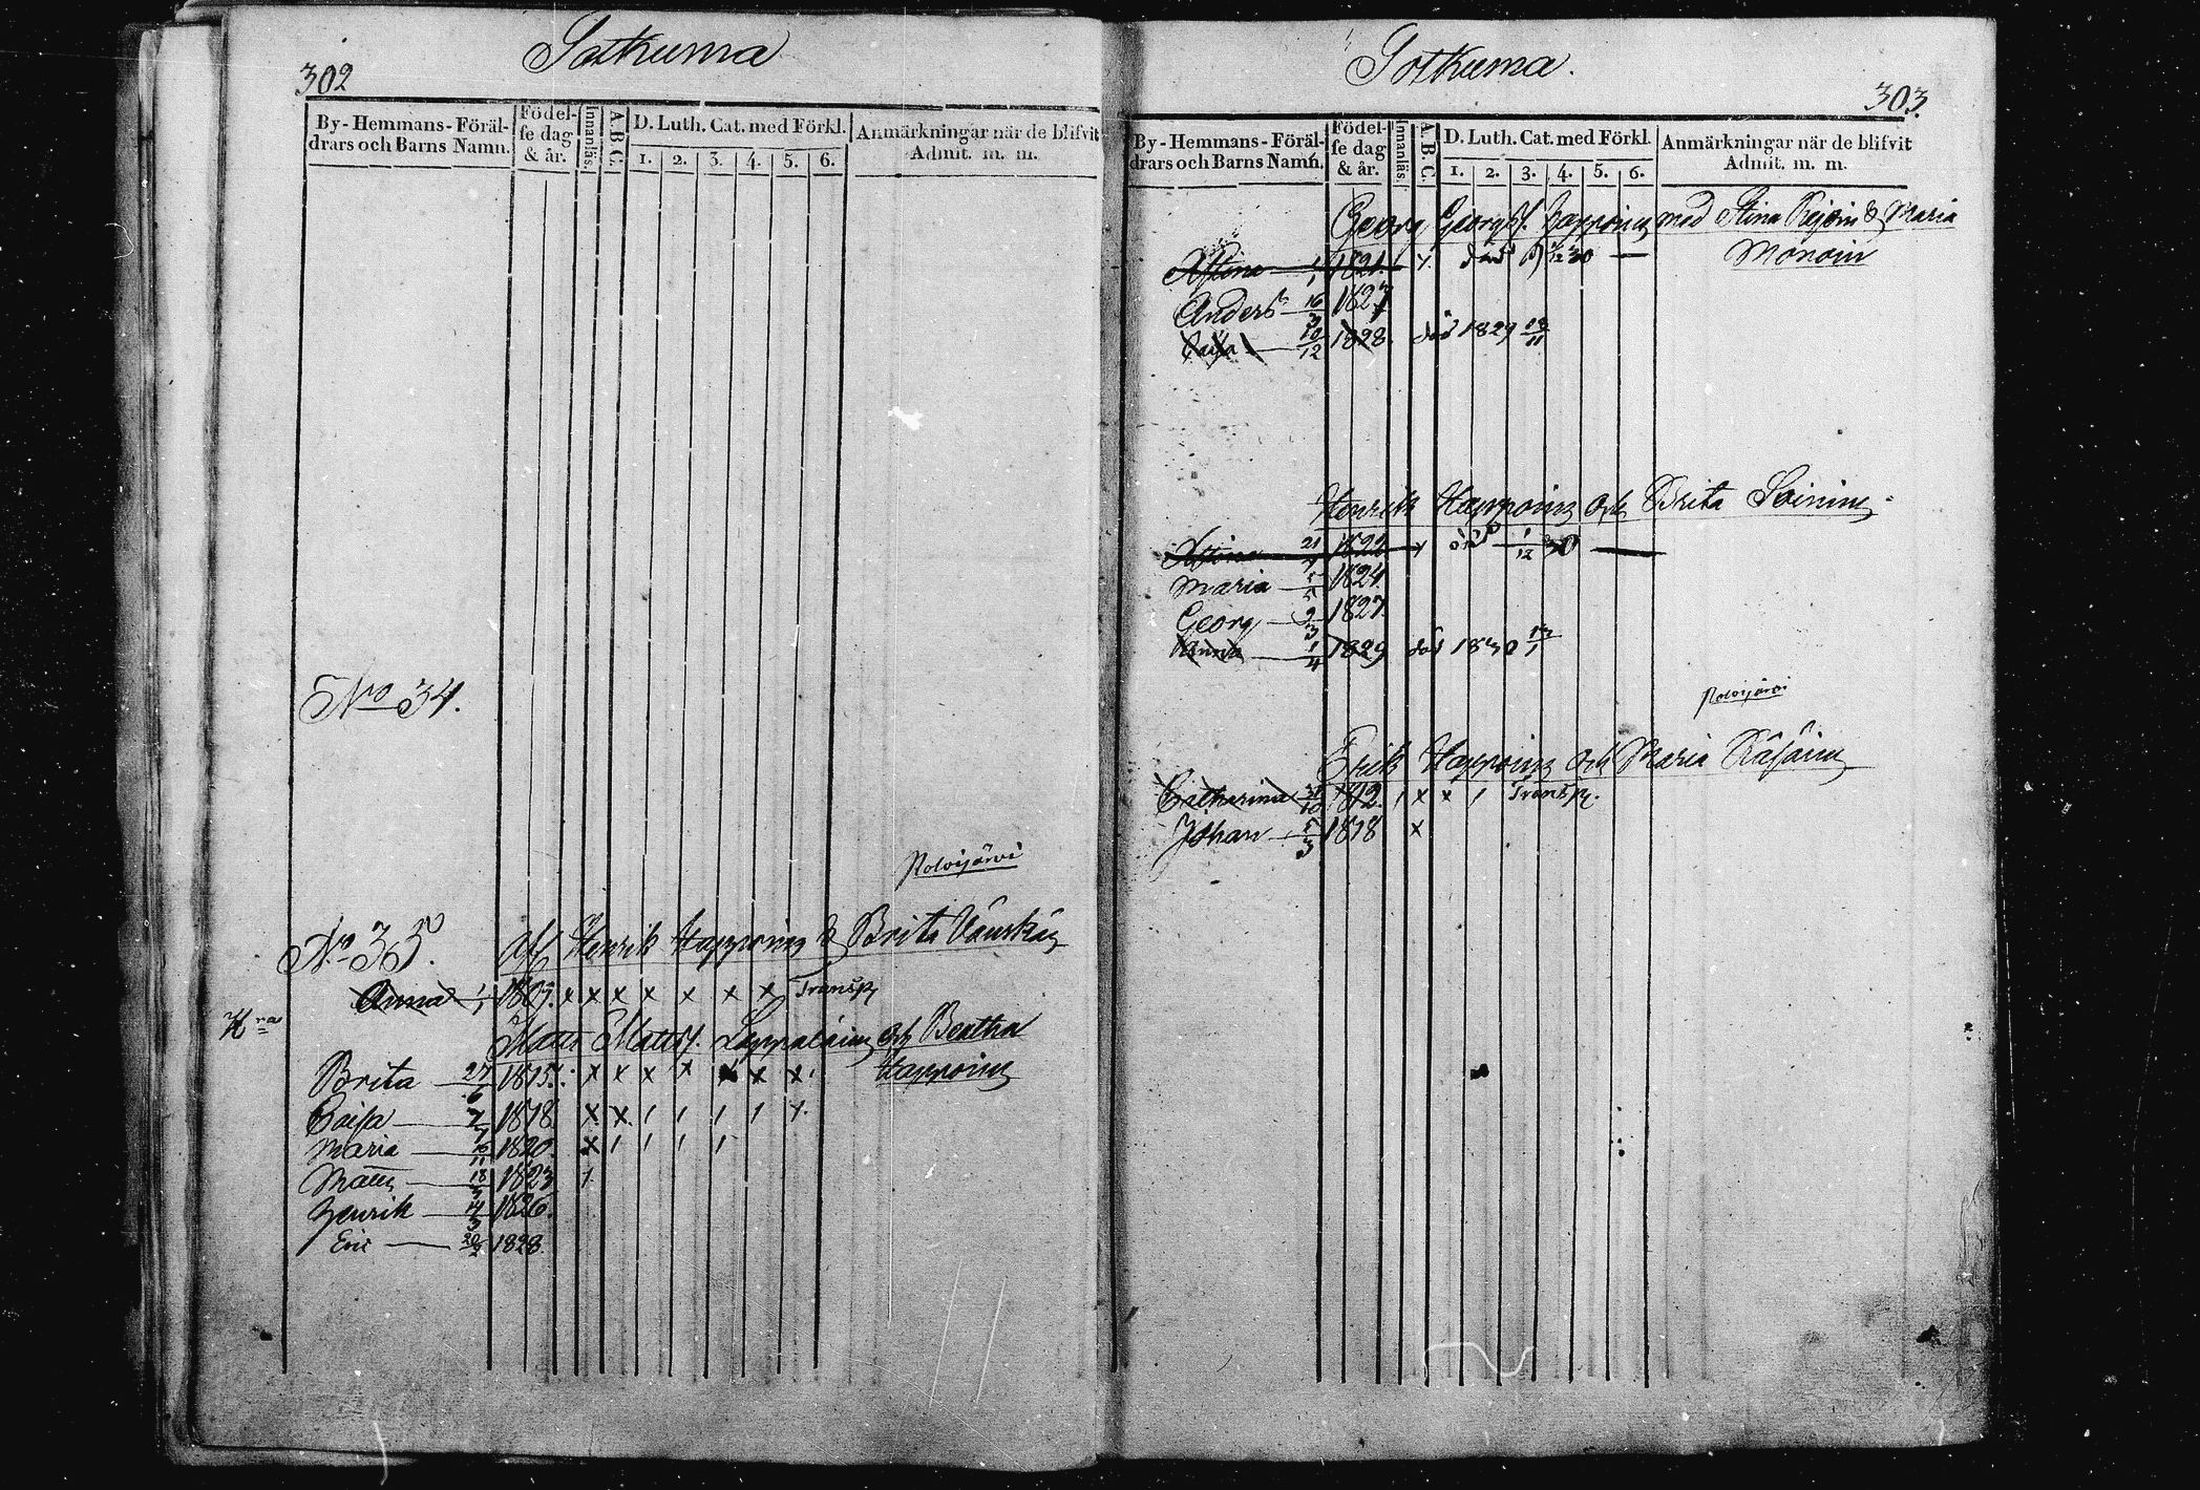 302
Sotkuma
By-Hemmans-Föräl-
drars och Barns Namn.
Födel-
se dag
& år.
Innanläs.
A.B.C.
D. Luth. Cat. med Förkl.
1. 2. 3. 4. 5. 6.
Anmärkningar när de blifvit
Admit. m. m.
No 34.
Polvijärvi
No 35.
Af Henrik Happoin & Brita Vänskäin
Anna 1/1 1805. x x x x x x x Transp
Matts Mattss. Lappalain och Beatha
Happoin
Brita 27/6 1815. x x x x x x x
Caisa 7/7 1818. x x 1 1 1 1 x
Maria 16/11 1820. x 1 1 1 1
Matts 18/3 1823 1
Henrik 14/3 1826.
Eric 20/2 1828.
Sotkuma.
303
By-Hemmans-Föräl-
drars och Barns Namn.
Födel-
se dag
& år.
Innanläs.
A.B.C.
D. Luth. Cat. med Förkl.
1. 2. 3. 4. 5. 6.
Anmärkningar när de blifvit
Admit. m. m.
Georg Georgss. Happoin med Stina & Maria
Stina 1/1 1821. död 1/12 30
Anders 16/3 1827
Caisa 10/12 1828. död 1829 /11
Henrik Happoin och Brita Soinin
21 1822 död 1/12 30
Maria 5/5 1824
Georg 2/3 1827.
Anna 1/4 1829 död 1830
Polvijärvi
Erik Happoin och Maria
Catharina 31/10 1812. 1 x x 1 Transp.
Johan 5/3 1818 x